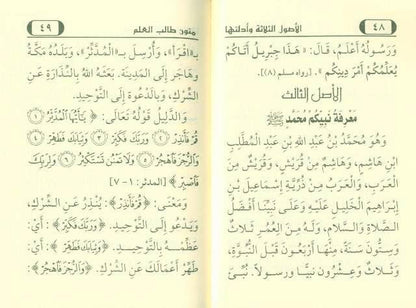 ٤٨
الأصول الثلاثة وأدلتها
وَرَسُولُهُ أَعْلَمُ، قَالَ: «هَذَا جِبْرِيلُ أَتَاكُمْ
يُعَلِّمُكُمْ أَمْرَ دِينِكُمْ». [رواه مسلم (٨)].
الأصل الثالث
مَعْرِفَةُ نَبِيِّكُمْ مُحَمَّدٍ ﷺ
وَهُوَ مُحَمَّدُ بْنُ عَبْدِ اللهِ بْنِ عَبْدِ الْمُطَّلِبِ
ابْنِ هَاشِمٍ، وَهَاشِمٌ مِنْ قُرَيْشٍ، وَقُرَيْشٌ مِنَ
الْعَرَبِ، وَالْعَرَبُ مِنْ ذُرِّيَّةِ إِسْمَاعِيلَ بْنِ
إِبْرَاهِيمَ الْخَلِيلِ عَلَيْهِ وَعَلَى نَبِيِّنَا أَفْضَلُ
الصَّلَاةِ وَالسَّلَامِ، وَلَهُ مِنَ الْعُمُرِ ثَلَاثٌ
وَسِتُّونَ سَنَةً، مِنْهَا أَرْبَعُونَ قَبْلَ النُّبُوَّةِ،
وَثَلَاثٌ وَعِشْرُونَ نَبِيًّا وَرَسُولاً. نُبِّئَ
متون طالب العلم
٤٩
بِـ«اقْرَأْ»، وَأُرْسِلَ بِـ«الْمُدَّثِّرْ»، وَبَلَدُهُ مَكَّةُ
وَهَاجَرَ إِلَى الْمَدِينَةِ. بَعَثَهُ اللهُ بِالنِّذَارَةِ عَنِ
الشِّرْكِ، وَبِالدَّعْوَةِ إِلَى التَّوْحِيدِ.
وَالدَّلِيلُ قَوْلُهُ تَعَالَى: ﴿يَا أَيُّهَا الْمُدَّثِّرُ ۝١
قُمْ فَأَنْذِرْ ۝٢ وَرَبَّكَ فَكَبِّرْ ۝٣ وَثِيَابَكَ فَطَهِّرْ ۝٤
وَالرُّجْزَ فَاهْجُرْ ۝٥ وَلَا تَمْنُنْ تَسْتَكْثِرُ ۝٦ وَلِرَبِّكَ
فَاصْبِرْ﴾ [المدثر: ١ - ٧]
وَمَعْنَى: ﴿قُمْ فَأَنْذِرْ﴾: يُنْذِرُ عَنِ الشِّرْكِ،
وَيَدْعُو إِلَى التَّوْحِيدِ. ﴿وَرَبَّكَ فَكَبِّرْ﴾ أَيْ:
عَظِّمْهُ بِالتَّوْحِيدِ. ﴿وَثِيَابَكَ فَطَهِّرْ﴾؛ أَيْ:
طَهِّرْ أَعْمَالَكَ عَنِ الشِّرْكِ. ﴿وَالرُّجْزَ فَاهْجُرْ﴾: